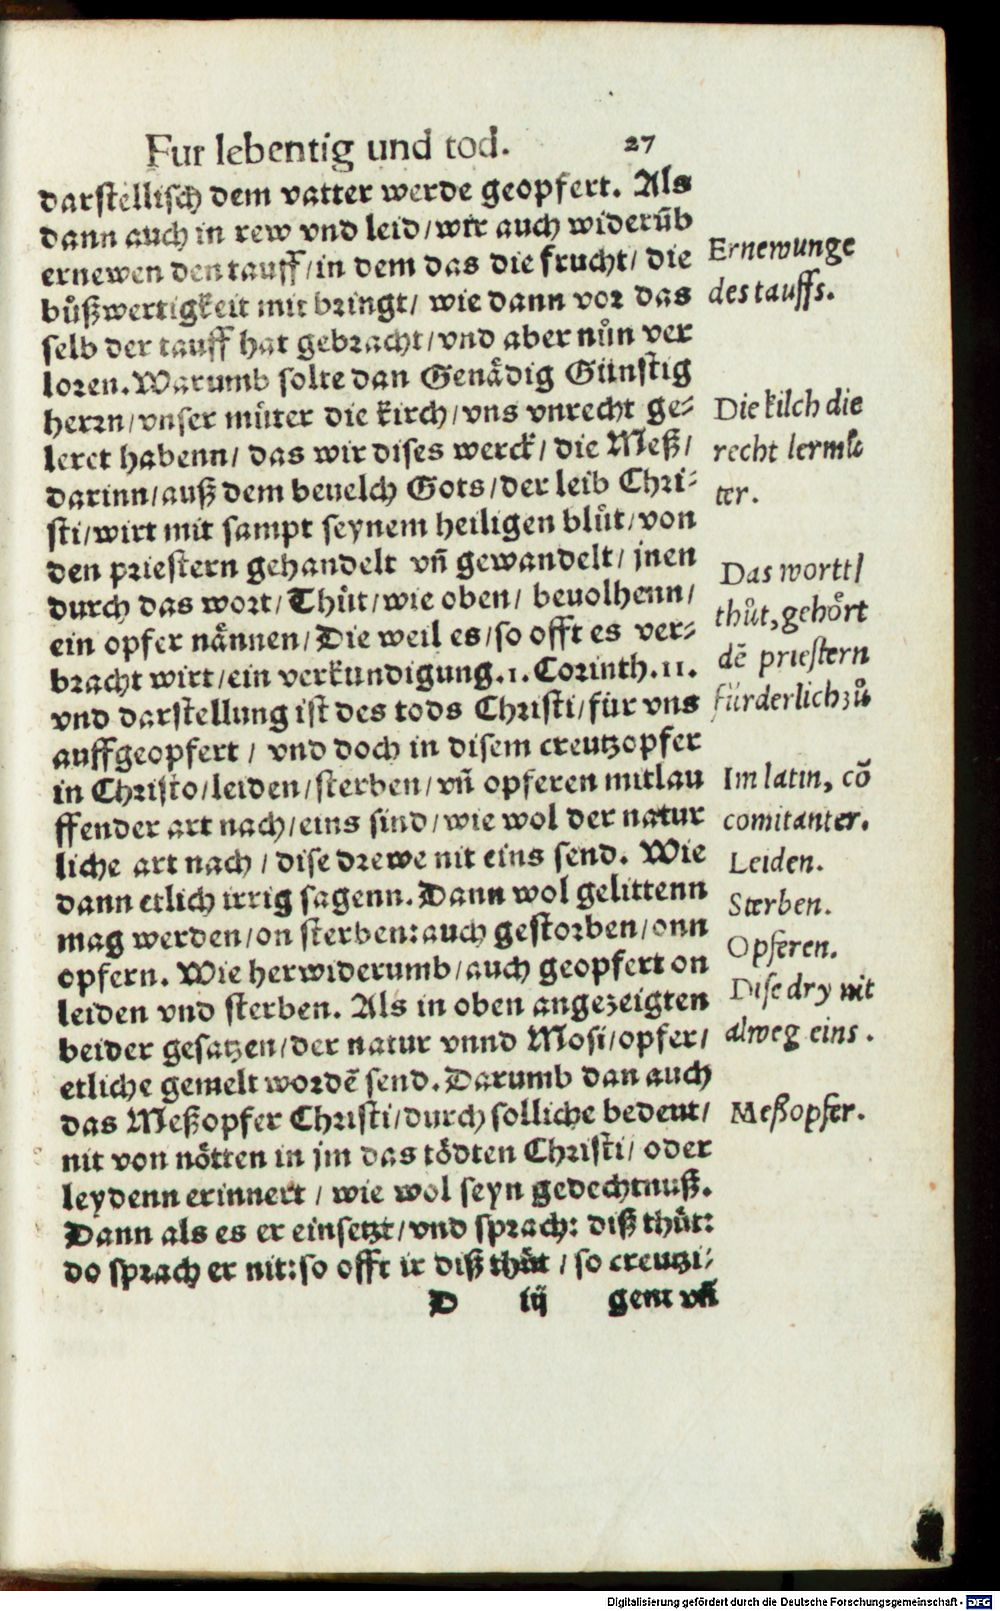 Fur lebentig und tod. 27
darstellisch dem vatter werde geopfert. Als
dann auch in rew vnd leid/wir auch widerūb
ernewen den tauff/in dem das die frucht/die
bůßwertigkeit mit bringt/ wie dann vor das
selb der tauff hat gebracht/vnd aber nůn ver
loren. Warumb solte dan Genådig Günstig
herrn/vnser můter die kirch/vns vnrecht ge-
leret habenn/ das wir dises werck/ die Meß/
darinn/auß dem beuelch Gots/der leib Chri-
sti/wirt mit sampt seynem heiligen blůt/von
den priestern gehandelt vñ gewandelt/ jnen
durch das wort/Thůt/wie oben/ beuolhenn/
ein opfer nånnen/Die weil es/so offt es ver-
bracht wirt/ein verkundigung.1.Corinth.11.
vnd darstellung ist des tods Christi/für vns
auffgeopfert/ vnd doch in disem creutzopfer
in Christo/leiden/sterben/vñ opferen mitlau
ffender art nach/eins sind/wie wol der natur
liche art nach/dise drewe nit eins send. Wie
dann etlich irrig sagenn. Dann wol gelittenn
mag werden/on sterben:auch gestorben/onn
opfern. Wie herwiderumb/auch geopfert on
leiden vnd sterben. Als in oben angezeigten
beider gesatzen/der natur vnnd Mosi/opfer/
etliche gemelt wordē send. Darumb dan auch
das Meßopfer Christi/durch solliche bedeut/
nit von nötten in jm das tödten Christi/ oder
leydenn erinnert/ wie wol seyn gedechtnuß.
Dann als es er einsetzt/vnd sprach: diß thůt:
do sprach er nit:so offt ir diß thůt/so creutzi-
D iij gent vñ
Ernewunge
des tauffs.
Die kilch die
recht lerm
ter.
Das wortt/
thůt, gehört
dē priestern
fürderlich zů
Im latin, cō
comitanter.
Leiden.
Sterben.
Opferen.
Dise dry nit
alweg eins.
Meßopfer.
Digitalisierung gefördert durch die Deutsche Forschungsgemeinschaft - DFG